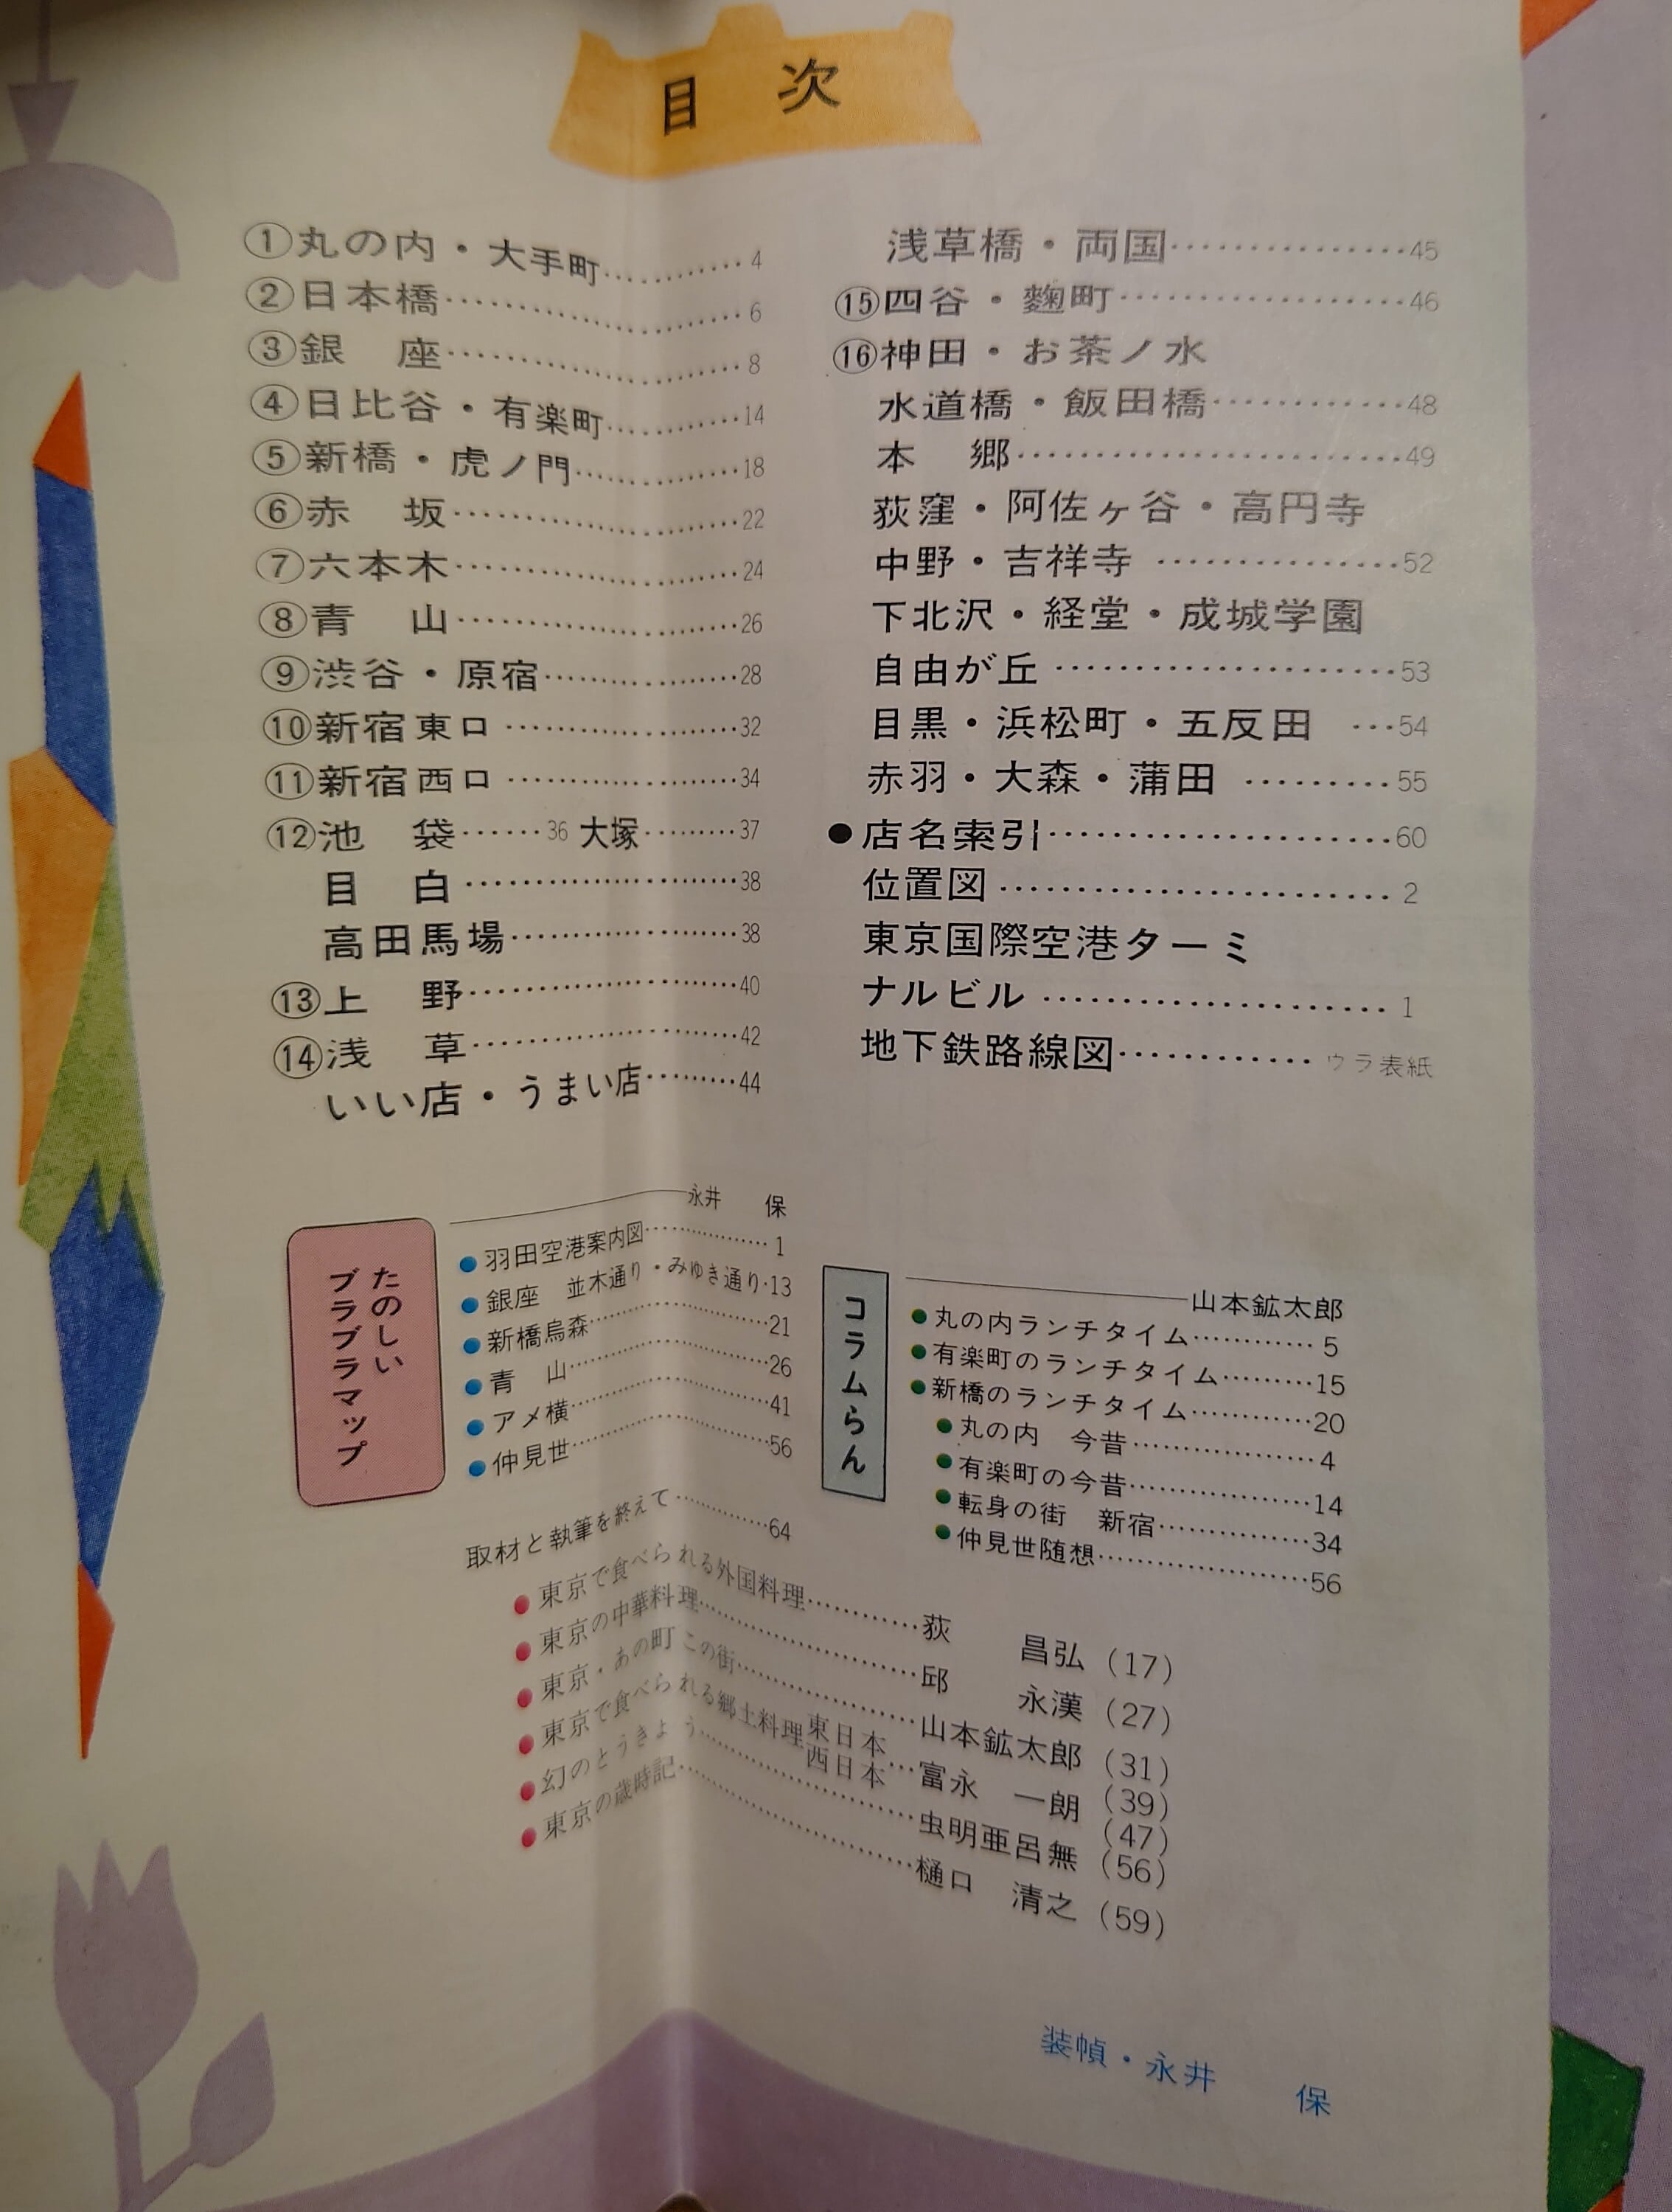 目　次
①丸の内・大手町…………4
②日本橋…………6
③銀　座…………8
④日比谷・有楽町…………14
⑤新橋・虎ノ門…………18
⑥赤　坂…………22
⑦六本木…………24
⑧青　山…………26
⑨渋谷・原宿…………28
⑩新宿東口…………32
⑪新宿西口…………34
⑫池　袋……36 大塚………37
目　白…………38
高田馬場…………38
⑬上　野…………40
⑭浅　草…………42
いい店・うまい店………44
浅草橋・両国…………45
⑮四谷・麴町…………46
⑯神田・お茶ノ水
水道橋・飯田橋…………48
本　郷…………49
荻窪・阿佐ヶ谷・高円寺
中野・吉祥寺…………52
下北沢・経堂・成城学園
自由が丘…………53
目黒・浜松町・五反田…54
赤羽・大森・蒲田………55
●店名索引…………60
位置図…………2
東京国際空港ターミ
ナルビル…………1
地下鉄路線図…………ウラ表紙
たのしい
ブラブラマップ
永井　保
●羽田空港案内図…………1
●銀座　並木通り・みゆき通り・13
●新橋烏森…………21
●青　山…………26
●アメ横…………41
●仲見世…………56
コラムらん
山本鉱太郎
●丸の内ランチタイム…………5
●有楽町のランチタイム………15
●新橋のランチタイム…………20
●丸の内　今昔…………4
●有楽町の今昔…………14
●転身の街　新宿…………34
●仲見世随想…………56
取材と執筆を終えて…………64
●東京で食べられる外国料理…………荻　昌弘（17）
●東京の中華料理…………邱　永漢（27）
●東京・あの町この街…………山本鉱太郎（31）
●東京で食べられる郷土料理 東日本 西日本…富永　一朗（39）（47）
●幻のとうきょう…………虫明亜呂無（56）
●東京の歳時記…………樋口　清之（59）
装幀・永井　保